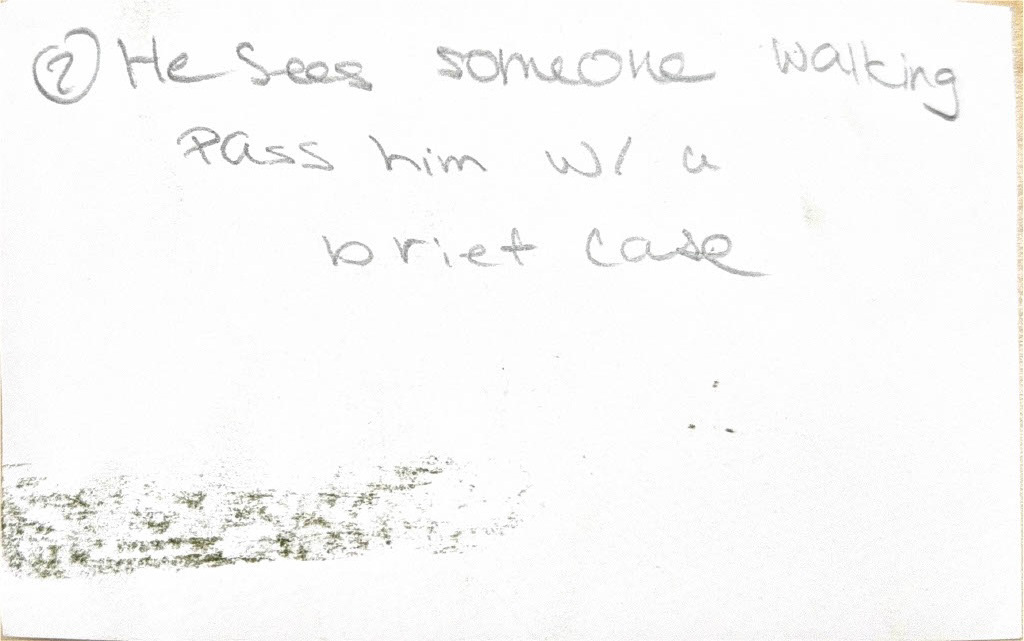 ② He Sees someone walking
Pass him w/ a
brief case